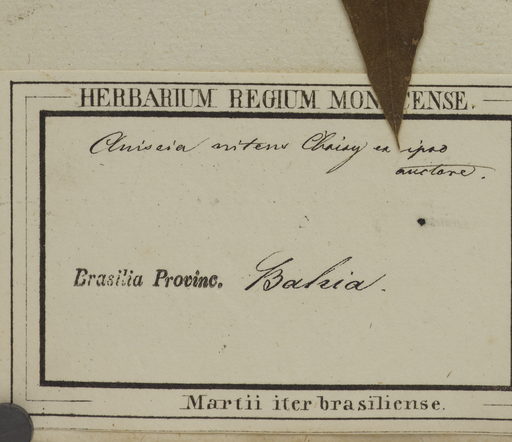 HERBARIUM REGIUM MONACENSE.
Aniseia nitens Choisy ex ipso
auctore.
Brasilia Provinc. Bahia.
Martii iter brasiliense.